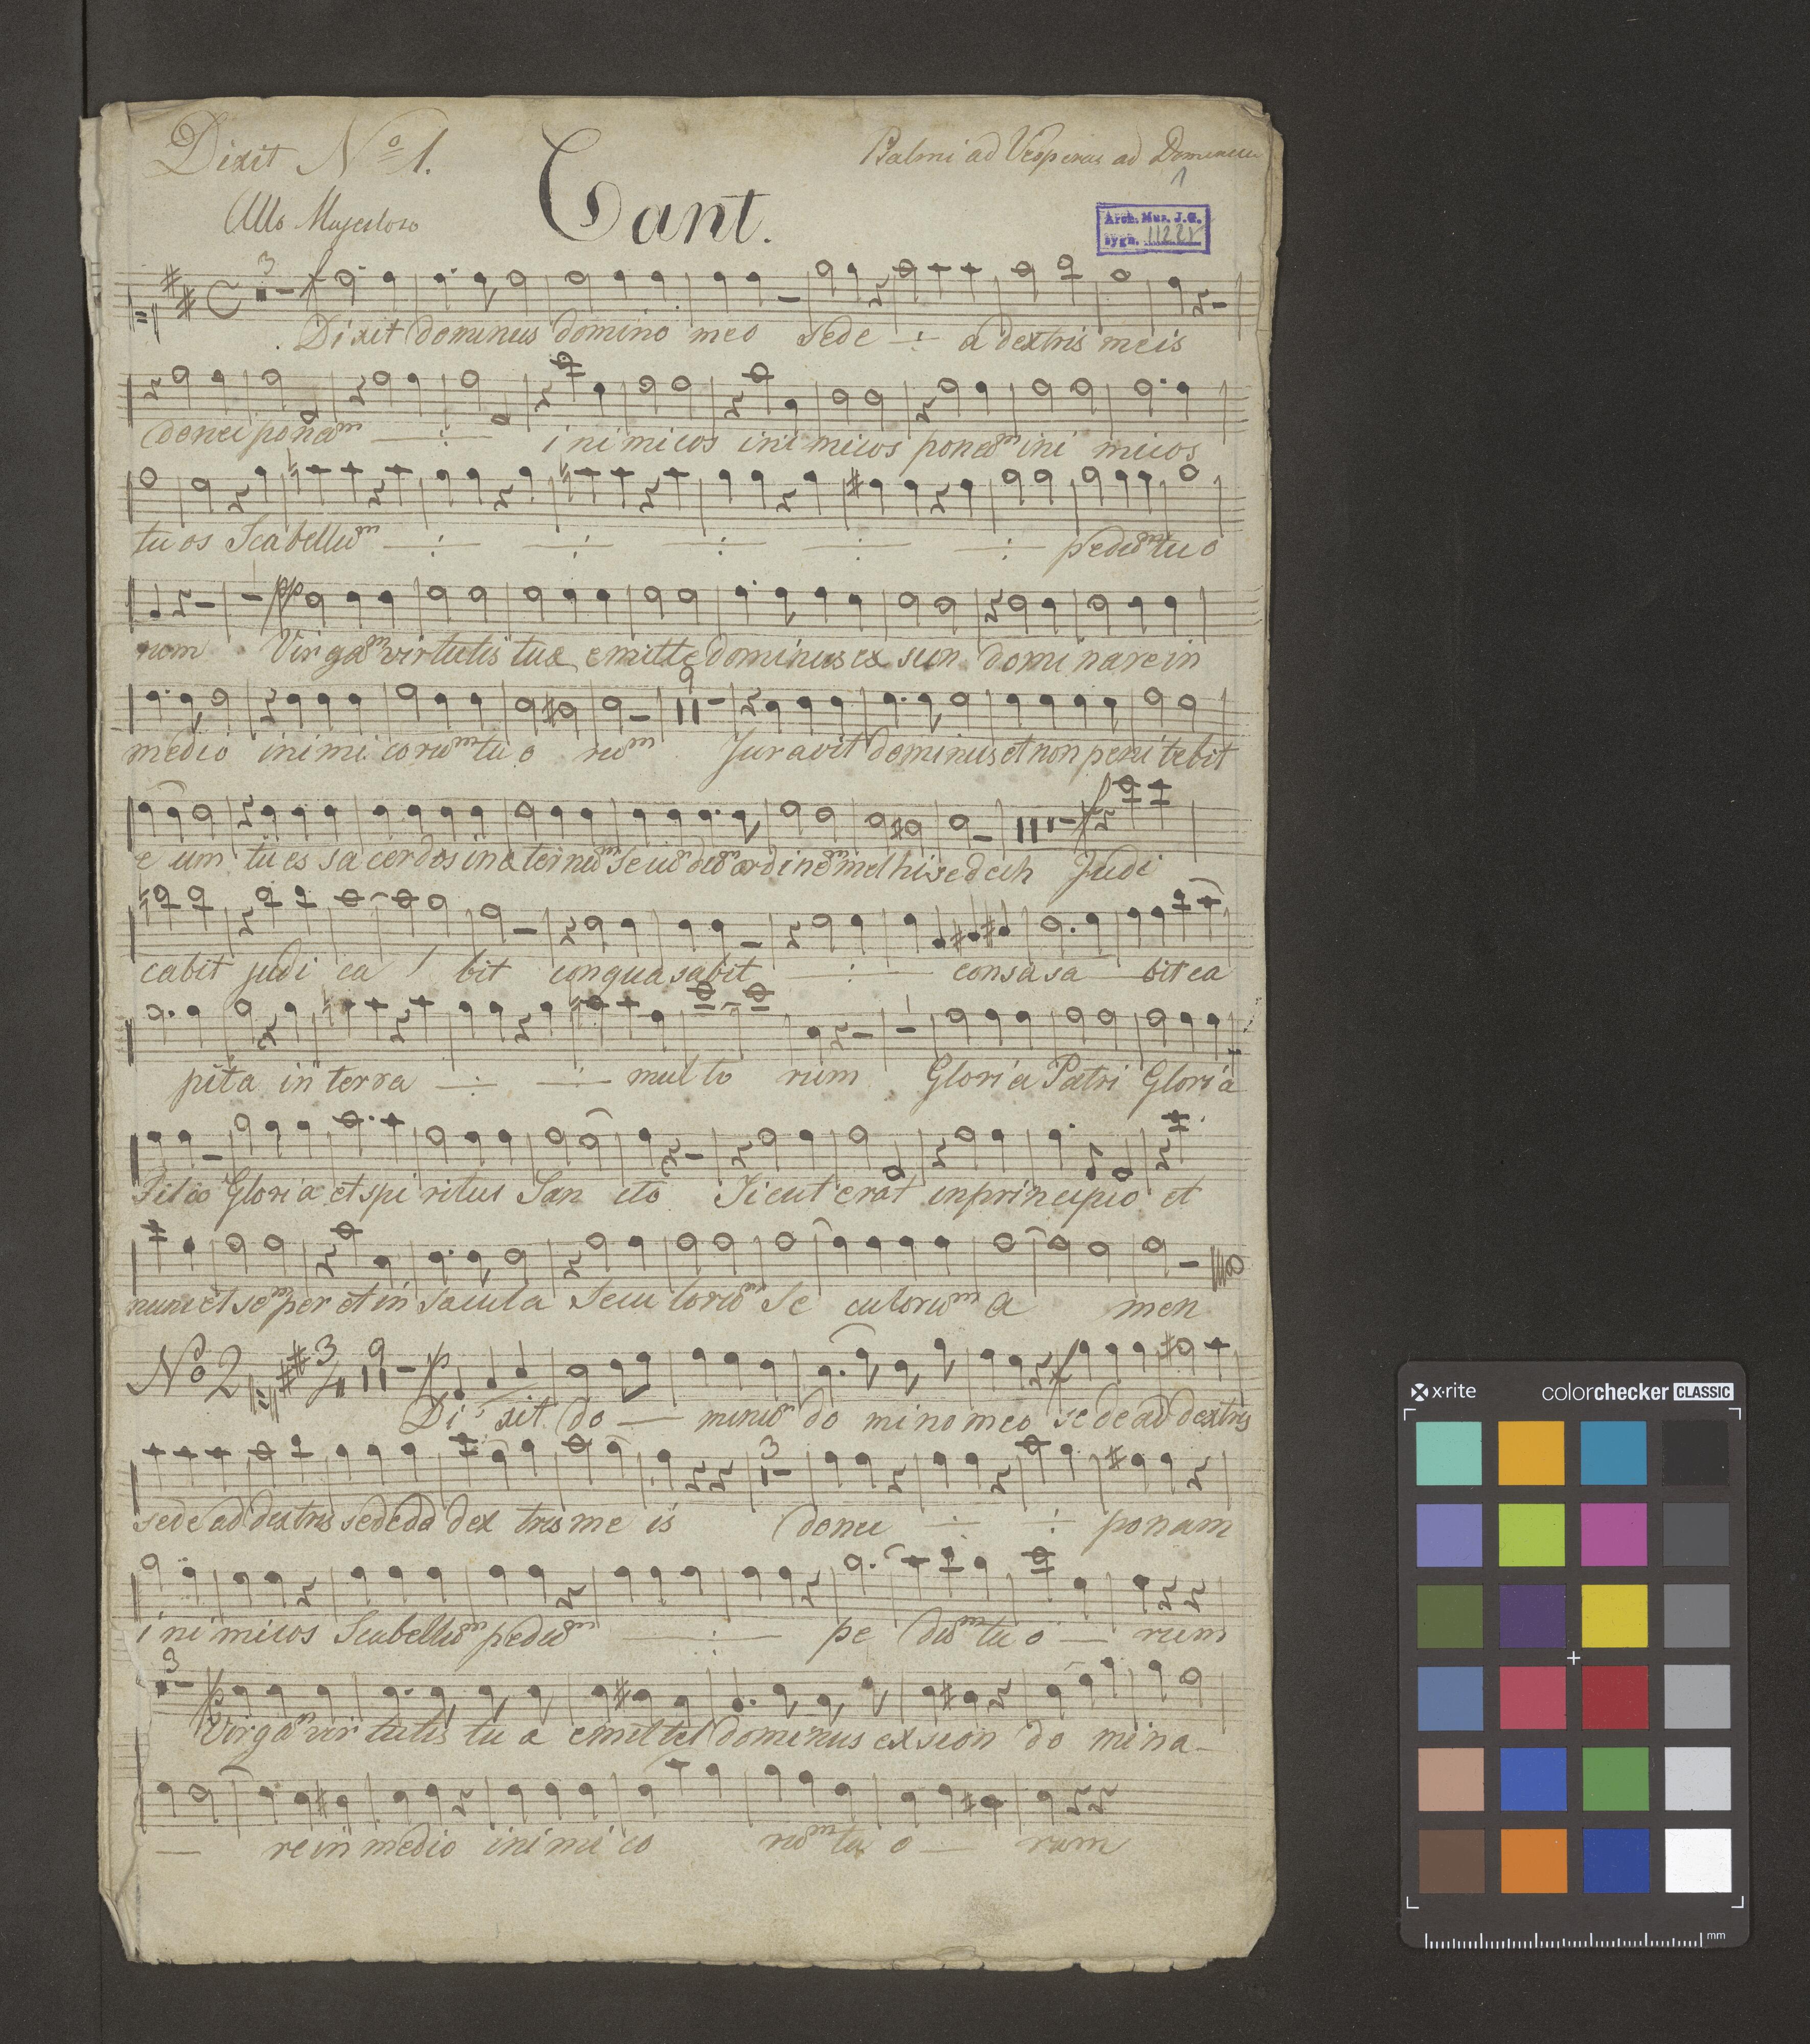 Dixit No 1.
Psalmi ad Vesperas ad
1
Cant.
Allo Majestoso
Arch. Muz. J.G.
sygn. 11221
3 f
Dixit dominus domino meo sede ÷ a dextris meis
donec ponam ÷ inimicos inimicos ponam ini micos
tu os Scabellum ÷ ÷ ÷ ÷ ÷ pedum tu o
pp
rum Virgam virtutis tuæ emitte dominus ex sion domi nare in
9
medio inimi corum tu o rum Juravit dominus et non peni tebit
f
e um tu es sa cerdos in æternum secundum ordinem melhisedech Judi
cabit judi ca bit conquasabit ÷ consasa bit ca
pita in terra ÷ ÷ multo rum Gloria Patri Gloria
Filio Gloria et spi ritui San cto Sicut erat in principio et
nunc et semper et in sæcula Secu lorum Se culorum a men
No 2 3/4 9 p f
Di xit do — minus do mino meo se de ad dextris
3
sede ad dextris sede ad dex tris me is donec ÷ ÷ ponam
inimicos Scabellum pedum ÷ pe dum tu o — rum
3 p
Virgam vir tutis tu æ emittet dominus ex sion do mina-
— re in medio inimi co rum tu o — rum
x·rite colorchecker CLASSIC
mm